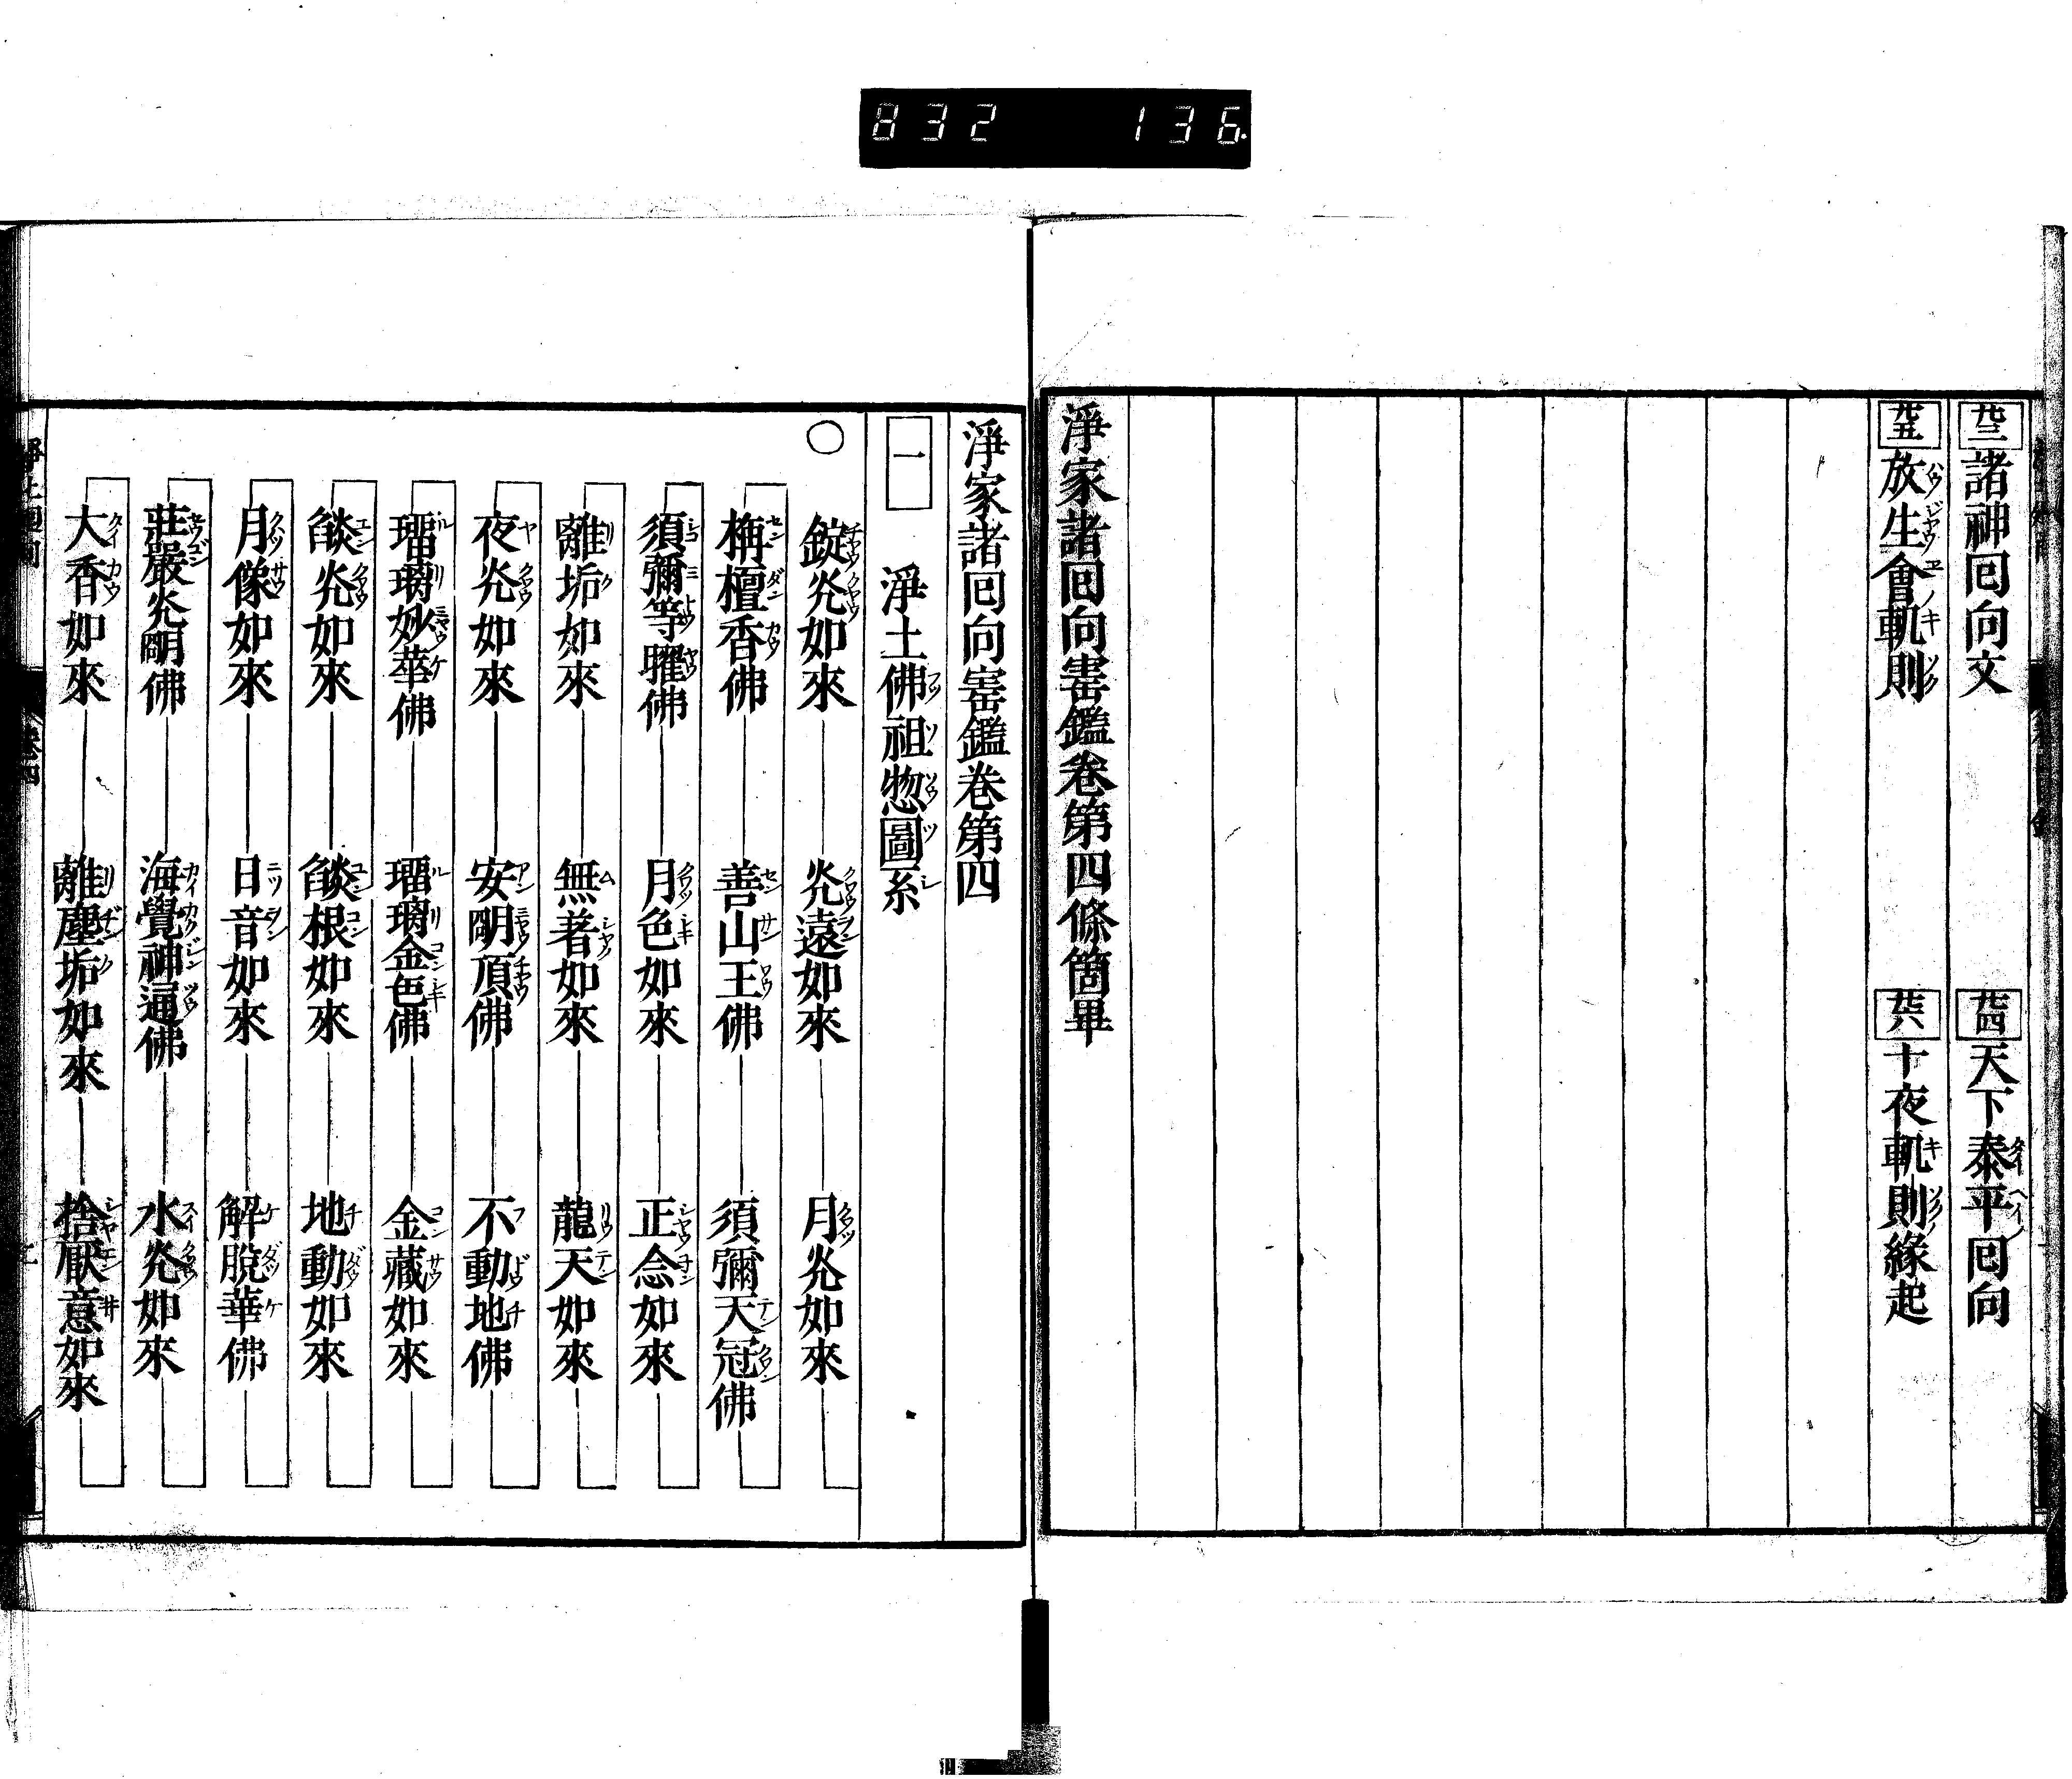 832 136
卄三 諸神囘向文 卄四 天下泰平囘向
卄五 放生會軌則 卄六 十夜軌則緣起
淨家諸囘向寚鑑卷第四條箇畢
淨家諸囘向寚鑑卷第四
一 淨土佛祖惣圖系
○ 錠灮如來 灮遠如來 月灮如來
栴檀香佛 善山王佛 須彌天冠佛
須彌等曜佛 月色如來 正念如來
離垢如來 無著如來 龍天如來
夜灮如來 安明頂佛 不動地佛
瑠璃妙華佛 瑠璃金色佛 金藏如來
燄灮如來 燄根如來 地動如來
月像如來 日音如來 解脫華佛
莊嚴灮明佛 海覺神通佛 水灮如來
大香如來 離塵垢如來 捨厭意如來